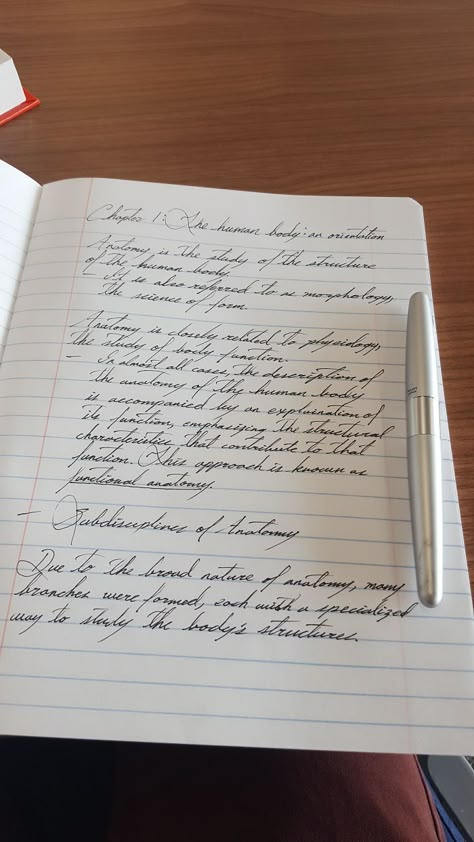 Chapter 1: The human body: an orientation
Anatomy is the study of the structure
of the human body.
- It is also referred to as morphology,
the science of form.
Anatomy is closely related to physiology,
the study of body function.
- In almost all cases, the description of
the anatomy of the human body
is accompanied by an explaination of
its function, emphasizing the structural
characteristics that contribute to that
function. This approach is known as
functional anatomy.
- Subdisciplines of Anatomy
Due to the broad nature of anatomy, many
branches were formed, each with a specialized
way to study the body's structures.